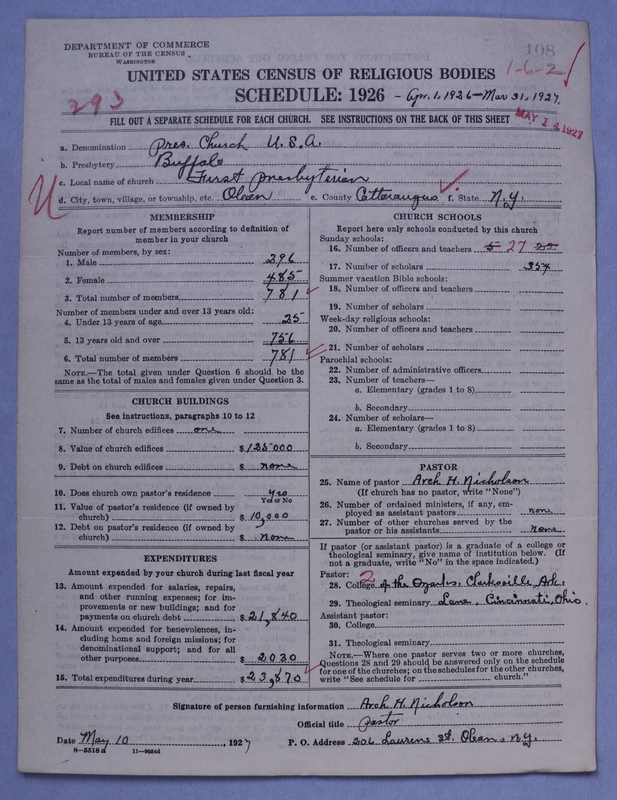 DEPARTMENT OF COMMERCE
BUREAU OF THE CENSUS
WASHINGTON
108
UNITED STATES CENSUS OF RELIGIOUS BODIES
1-6-2
SCHEDULE: 1926 - Apr. 1, 1926-Mar 31, 1927.
293
FILL OUT A SEPARATE SCHEDULE FOR EACH CHURCH. SEE INSTRUCTIONS ON THE BACK OF THIS SHEET
MAY 14 1927
a. Denomination Pres. Church U.S.A.
b. Presbytery Buffalo
c. Local name of church First Presbyterian
d. City, town, village, or township, etc. Olean e. County Cattaraugus f. State N.Y.
MEMBERSHIP
Report number of members according to definition of
member in your church
Number of members, by sex:
1. Male 296
2. Female 485
3. Total number of members 781
Number of members under and over 13 years old:
4. Under 13 years of age 25
5. 13 years old and over 756
6. Total number of members 781
NOTE.—The total given under Question 6 should be the
same as the total of males and females given under Question 3.
CHURCH BUILDINGS
See instructions, paragraphs 10 to 12
7. Number of church edifices one
8. Value of church edifices $125000
9. Debt on church edifices $ none
10. Does church own pastor's residence yes
Yes or No
11. Value of pastor's residence (if owned by
church) $10,000
12. Debt on pastor's residence (if owned by
church) $ none
EXPENDITURES
Amount expended by your church during last fiscal year
13. Amount expended for salaries, repairs,
and other running expenses; for im-
provements or new buildings; and for
payments on church debt $21,840
14. Amount expended for benevolences, in-
cluding home and foreign missions; for
denominational support; and for all
other purposes $2030
15. Total expenditures during year $23,870
CHURCH SCHOOLS
Report here only schools conducted by this church
Sunday schools:
16. Number of officers and teachers 5 27 22
17. Number of scholars 354
Summer vacation Bible schools:
18. Number of officers and teachers
19. Number of scholars
Week-day religious schools:
20. Number of officers and teachers
21. Number of scholars
Parochial schools:
22. Number of administrative officers
23. Number of teachers—
a. Elementary (grades 1 to 8)
b. Secondary
24. Number of scholars—
a. Elementary (grades 1 to 8)
b. Secondary
PASTOR
25. Name of pastor Arch H. Nicholson
(If church has no pastor, write "None")
26. Number of ordained ministers, if any, em-
ployed as assistant pastors none
27. Number of other churches served by the
pastor or his assistants none
If pastor (or assistant pastor) is a graduate of a college or
theological seminary, give name of institution below. (If
not a graduate, write "No" in the space indicated.)
Pastor: 2
28. College of the Ozarks, Clarksville, Ark.
29. Theological seminary Lane, Cincinnati, Ohio.
Assistant pastor:
30. College
31. Theological seminary
NOTE.—Where one pastor serves two or more churches,
Questions 28 and 29 should be answered only on the schedule
for one of the churches; on the schedules for the other churches,
write "See schedule for church."
Signature of person furnishing information Arch H. Nicholson
Official title pastor
Date May 10, 1927 P. O. Address 206 Laurens St. Olean, N.Y.
8-5518a